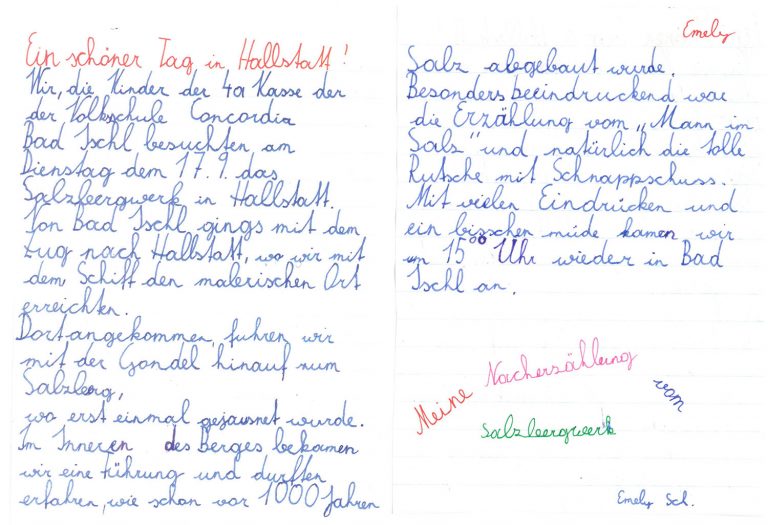 Ein schöner Tag in Hallstatt!
Wir, die Kinder der 4a Kasse der
der Volkschule Concordia
Bad Ischl besuchten am
Dienstag dem 17.9. das
Salzbergwerk in Hallstatt.
Von Bad Ischl gings mit dem
Zug nach Hallstatt, wo wir mit
dem Schiff den malerischen Ort
erreichten.
Dort angekommen, fuhren wir
mit der Gondel hinauf zum
Salzberg,
wo erst einmal gejausnet wurde.
Im Inneren des Berges bekamen
wir eine Führung und durften
erfahren, wie schon vor 1000 Jahren
Emely
Salz abgebaut wurde.
Besonders beeindruckend war
die Erzählung vom „Mann im
Salz" und natürlich die tolle
Rutsche mit Schnappschuss.
Mit vielen Eindrücken und
ein bisschen müde kamen wir
um 15⁰⁰ Uhr wieder in Bad
Ischl an.
Meine Nacherzählung vom
Salzbergwerk
Emely Sch.